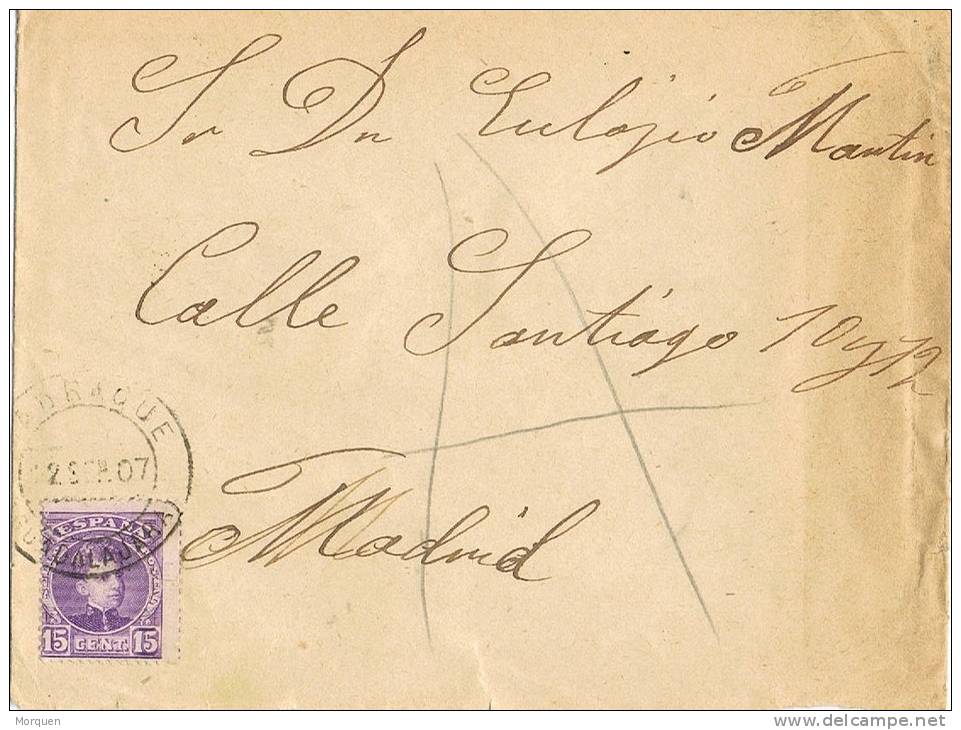 Sr Dn Eulogio Martin
Calle Santiago 10 y 12
Madrid
A
JADRAQUE
SEP.07
GUADALAJARA
ESPAÑA
15 CENT. 15
Morquen
http://www.delcampe.net